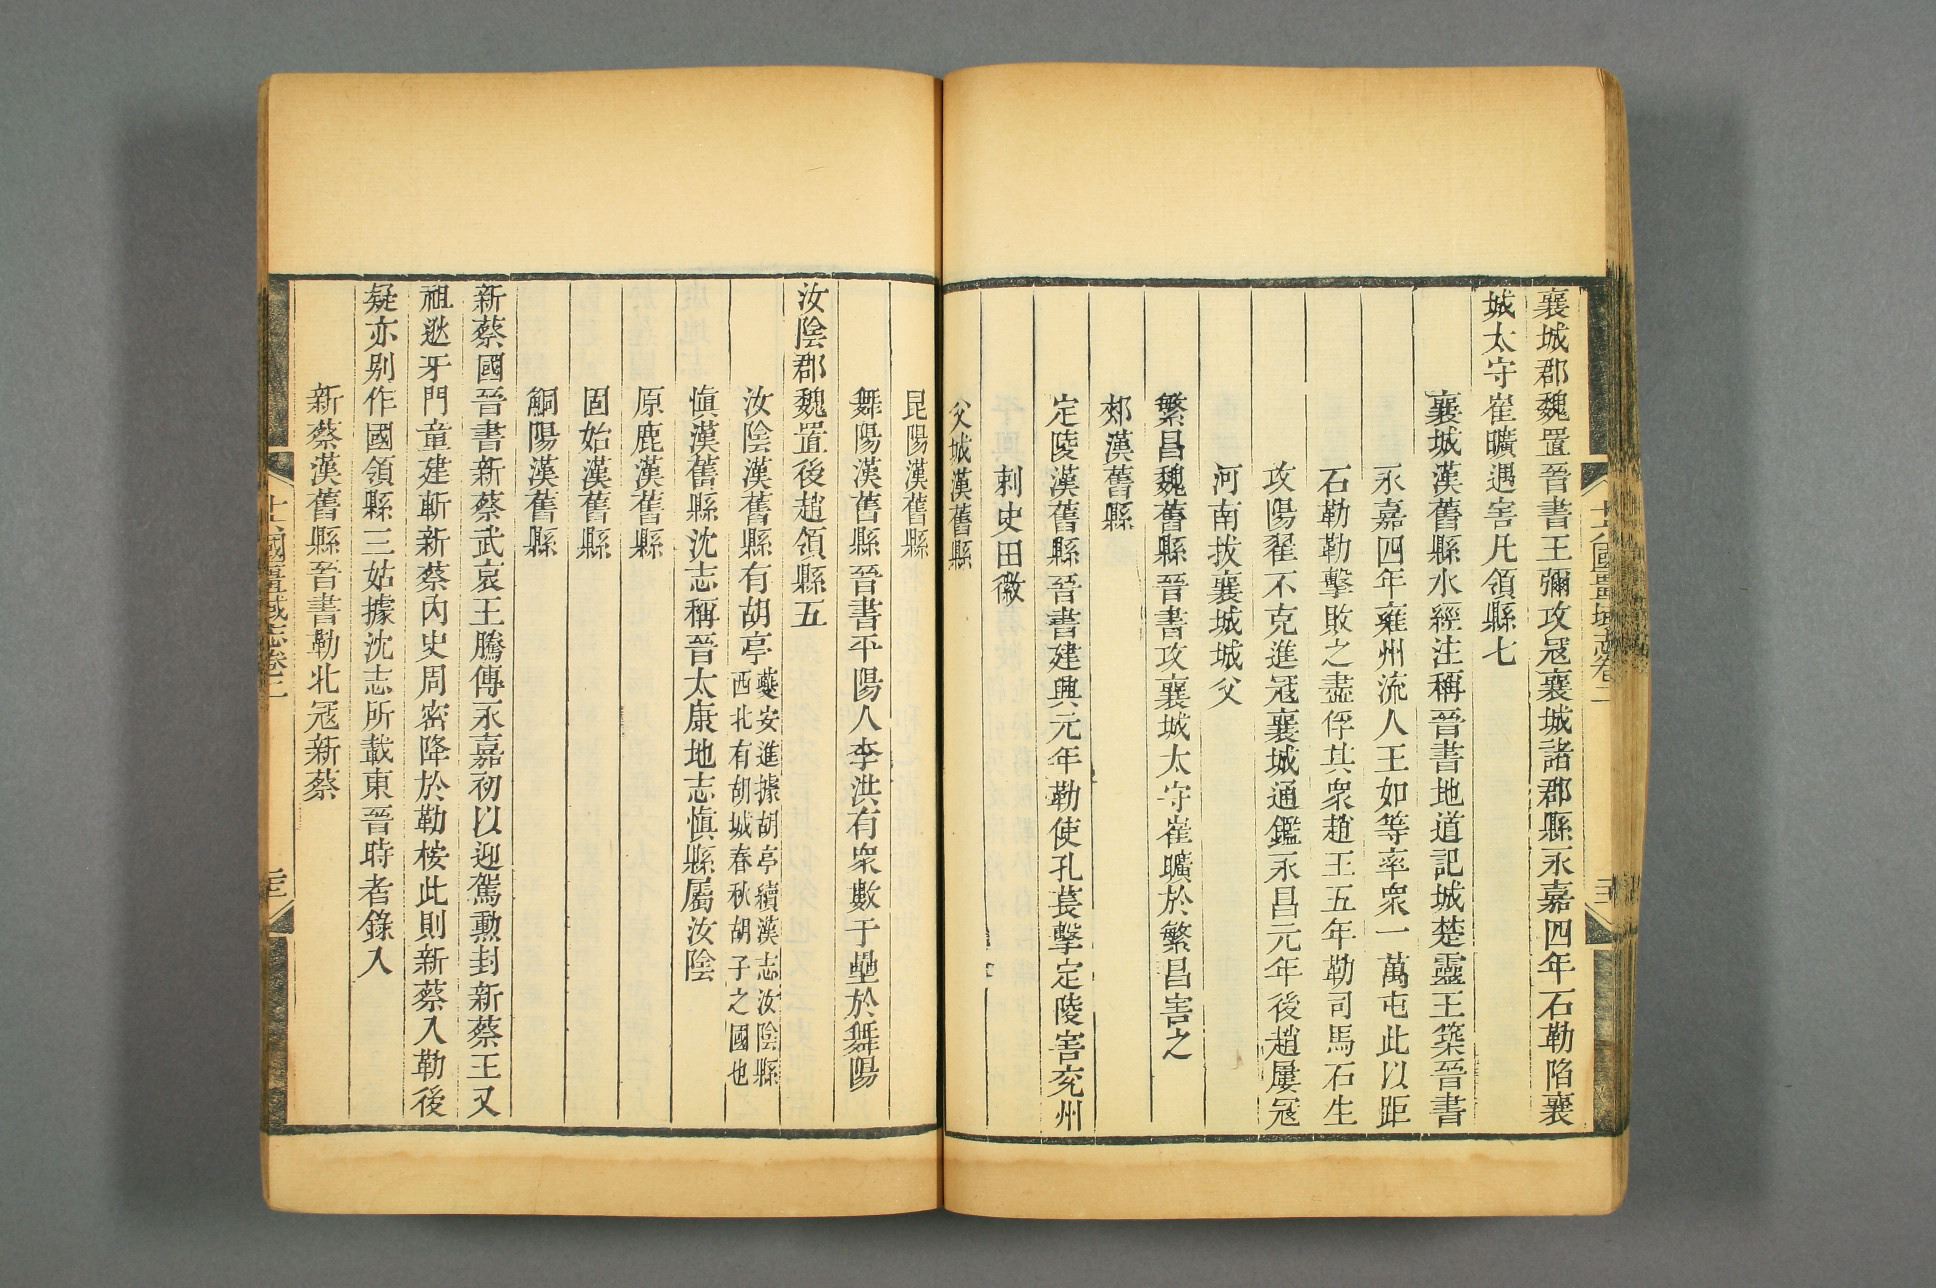 襄城郡魏置晉書王彌攻寇襄城諸郡縣永嘉四年石勒陷襄
城太守崔曠遇害凡領縣七
襄城漢舊縣水經注稱晉書地道記城楚靈王築晉書
永嘉四年雍州流人王如等率衆一萬屯此以距
石勒勒擊敗之盡俘其衆趙王五年勒司馬石生
攻陽翟不克進寇襄城通鑑永昌元年後趙屢寇
河南拔襄城城父
繁昌魏舊縣晉書攻襄城太守崔曠於繁昌害之
郟漢舊縣
定陵漢舊縣晉書建興元年勒使孔萇擊定陵害兖州
刺史田徽
父城漢舊縣
十六國疆域志卷二
昆陽漢舊縣
舞陽漢舊縣晉書平陽人李洪有衆數千壘於舞陽
汝陰郡魏置後趙領縣五
汝陰漢舊縣有胡亭夔安進據胡亭續漢志汝陰縣
西北有胡城春秋胡子之國也
愼漢舊縣沈志稱晉太康地志愼縣屬汝陰
原鹿漢舊縣
固始漢舊縣
鮦陽漢舊縣
新蔡國晉書新蔡武哀王騰傳永嘉初以迎駕勳封新蔡王又
祖逖牙門童建斬新蔡內史周密降於勒桉此則新蔡入勒後
疑亦別作國領縣三姑據沈志所載東晉時者錄入
新蔡漢舊縣晉書勒北寇新蔡
十六國疆域志卷二